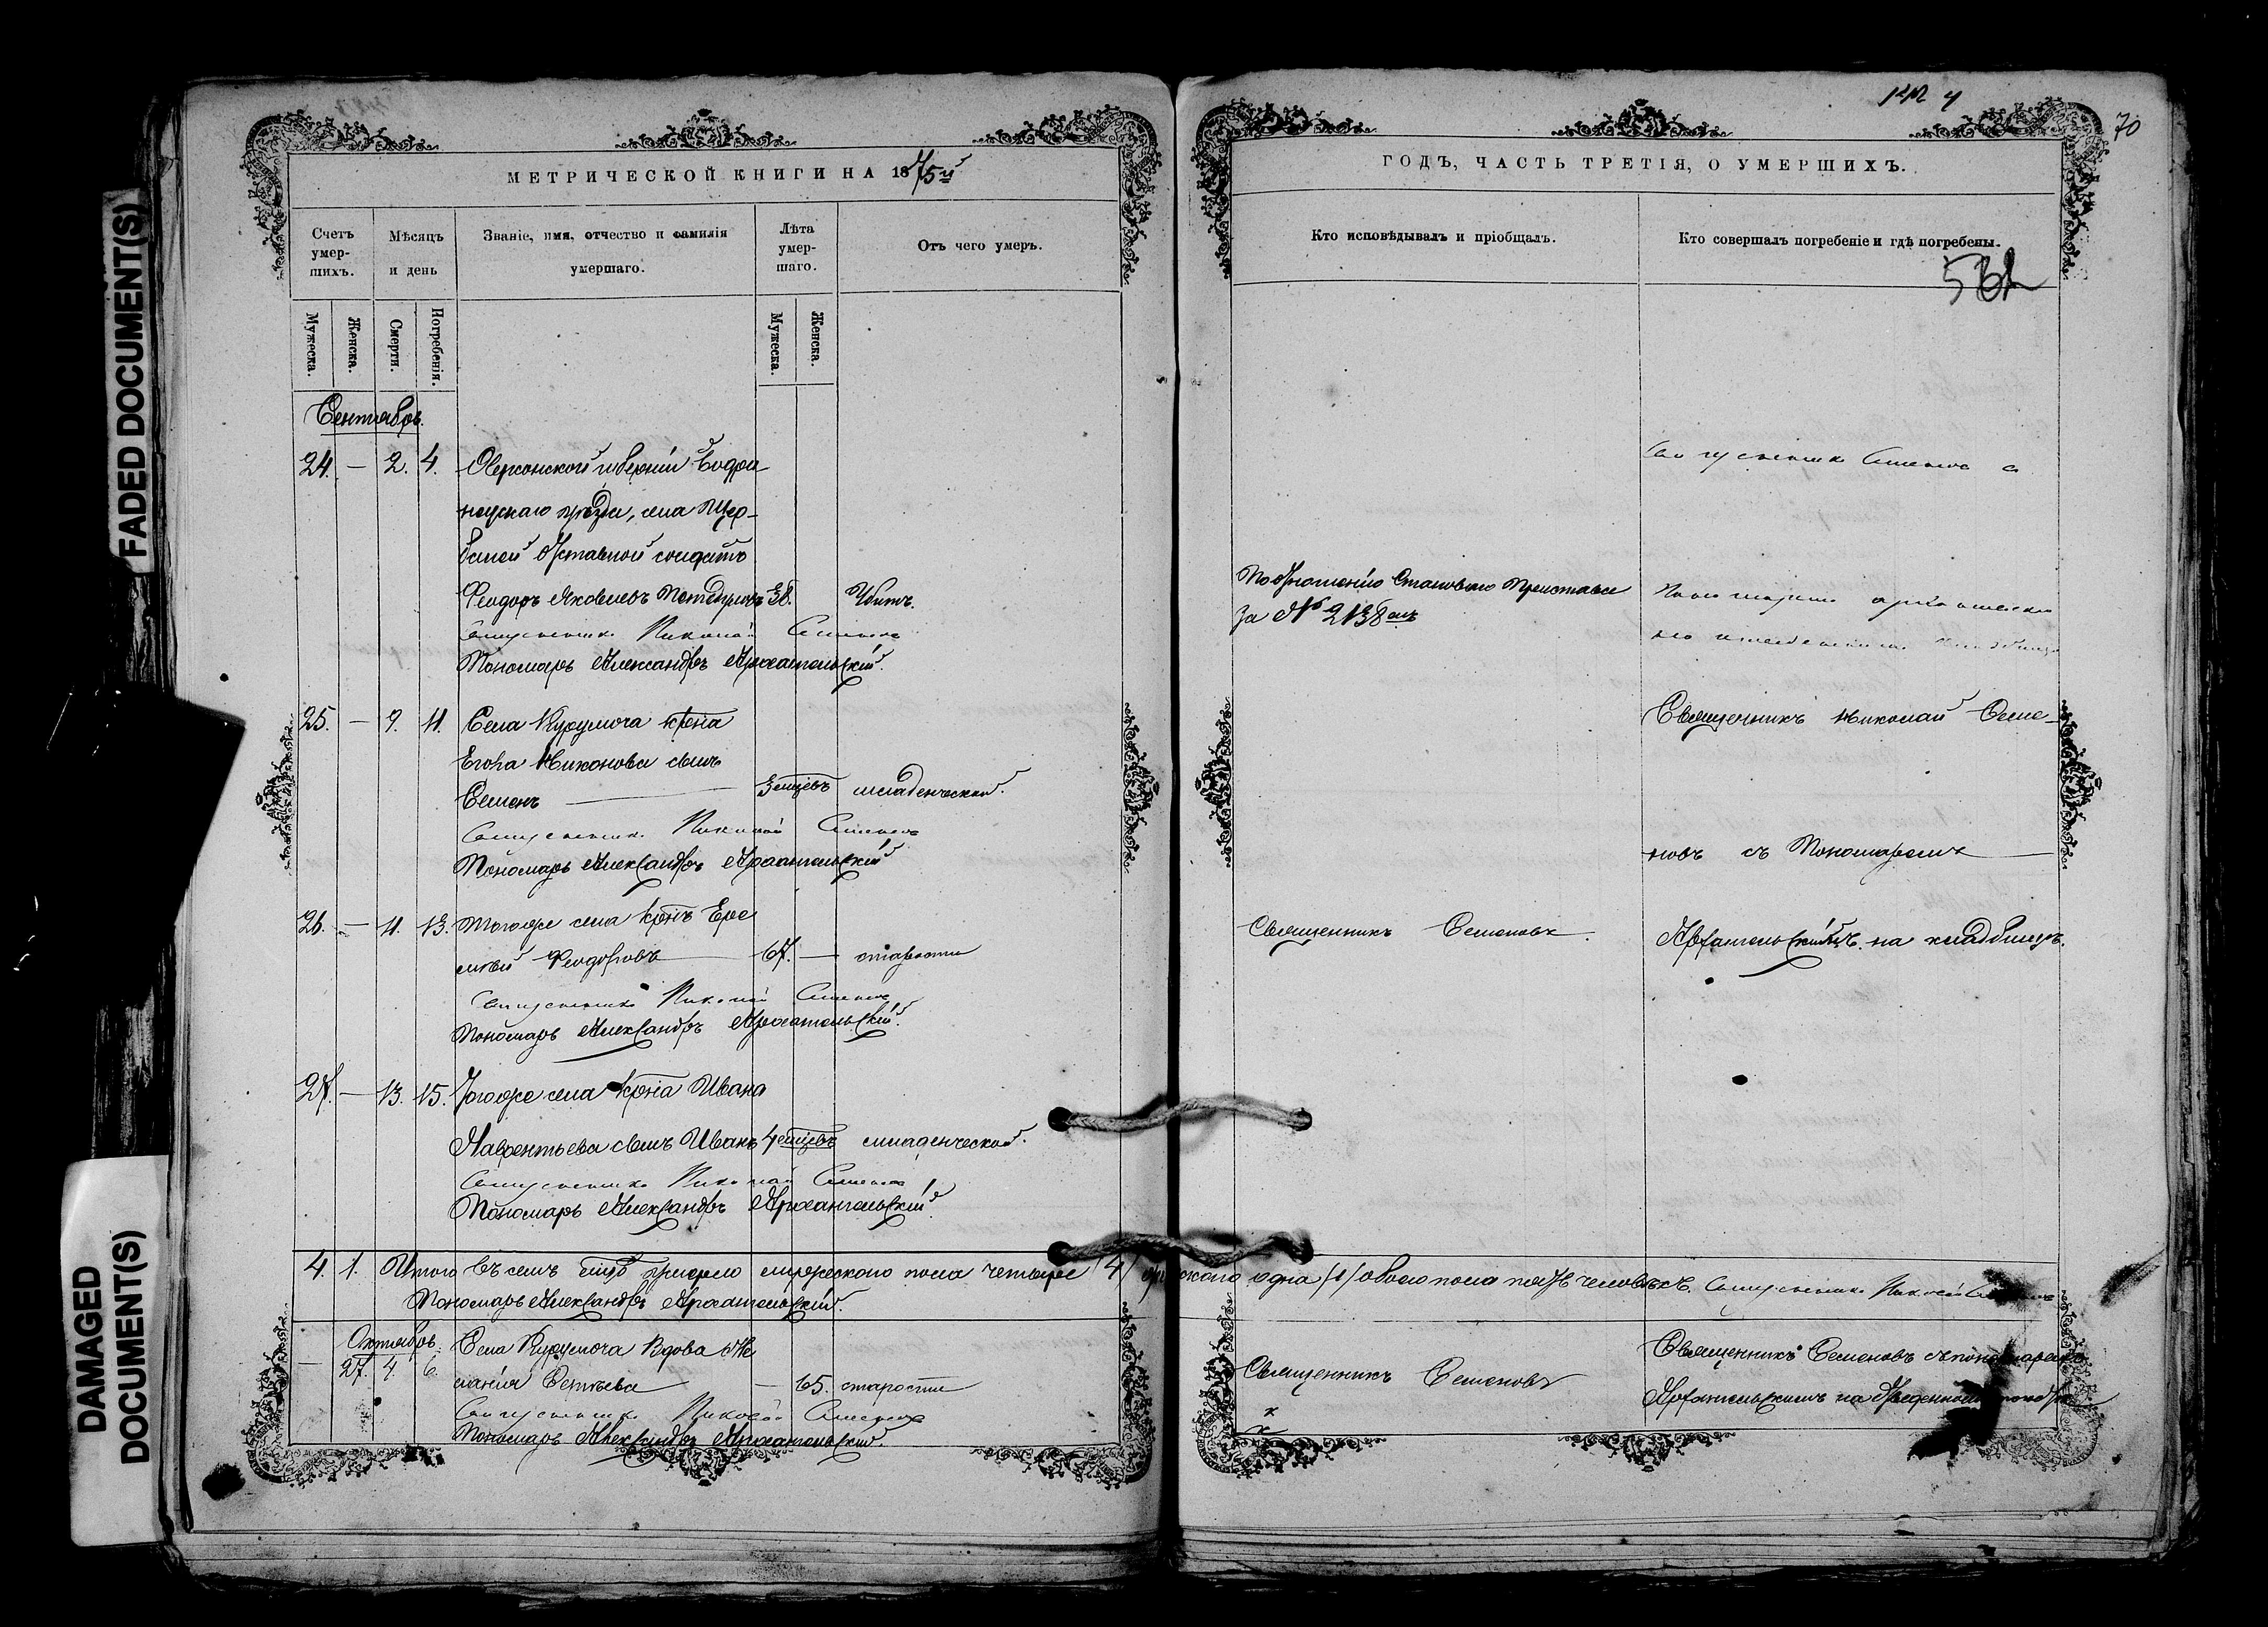 FADED DOCUMENT(S)
DAMAGED
DOCUMENT(S)
МЕТРИЧЕСКОЙ КНИГИ НА 1875й
Счетъ умер-шихъ.
Мѣсяцъ и день
Званіе, имя, отчество и фамилія умершаго.
Лѣта умер-шаго.
Отъ чего умеръ.
Мужеска.
Женска.
Смерти.
Погребенія.
Мужеска.
Женска.
Сентябрь.
24. — 2. 4. Херсонской губерніи Бобри
нецкаго уѣзда, села Щер-
баней отставной солдатъ
Феодоръ Яковлевъ 38. Убитъ.
Священникъ Николай Семеновъ
Пономарь Александръ Архангельскій.
25. — 9. 11. Села Курумоча крна
Егора Никонова сынъ
Семенъ 3 мцевъ младенческой.
Священникъ Николай Семеновъ
Пономарь Александръ Архангельскій
26. — 11. 13. Тогоже села крнъ Ере
мѣй Феодоровъ 67. — старости
Священникъ Николай Семеновъ
Пономарь Александръ Архангельскій.
27. — 13. 15. Тогоже села крна Ивана
Лаврентьева сынъ Иванъ 4 мцевъ младенческой.
Священникъ Николай Семеновъ
Пономарь Александръ Архангельскій.
4. 1. Итого въ семъ мцѣ умерло мужескаго пола четыре /4/
Пономарь Александръ Архангельскій.
Октябрь.
— 27. 4. 6. Села Курумоча вдова Ме
ланія — 65. старости
Священникъ Николай Семеновъ
Пономарь Александръ Архангельскій.
70
ГОДЪ, ЧАСТЬ ТРЕТІЯ, О УМЕРШИХЪ.
Кто исповѣдывалъ и пріобщалъ.
Кто совершалъ погребеніе и гдѣ погребены.
562
Священникъ Семеновъ с
По отношенію Становаго Пристава
за № 2138мъ
Пономаремъ Архангельски
Священникъ Николай Семе-
новъ съ Пономаремъ
Священникъ Семеновъ.
Архангельскимъ на кладбищѣ.
женскаго одна /1/ обоего пола пять человѣкъ. Священникъ Николай Семеновъ
Священникъ Семеновъ
Священникъ Семеновъ съ пономаремъ
Архангельскимъ на